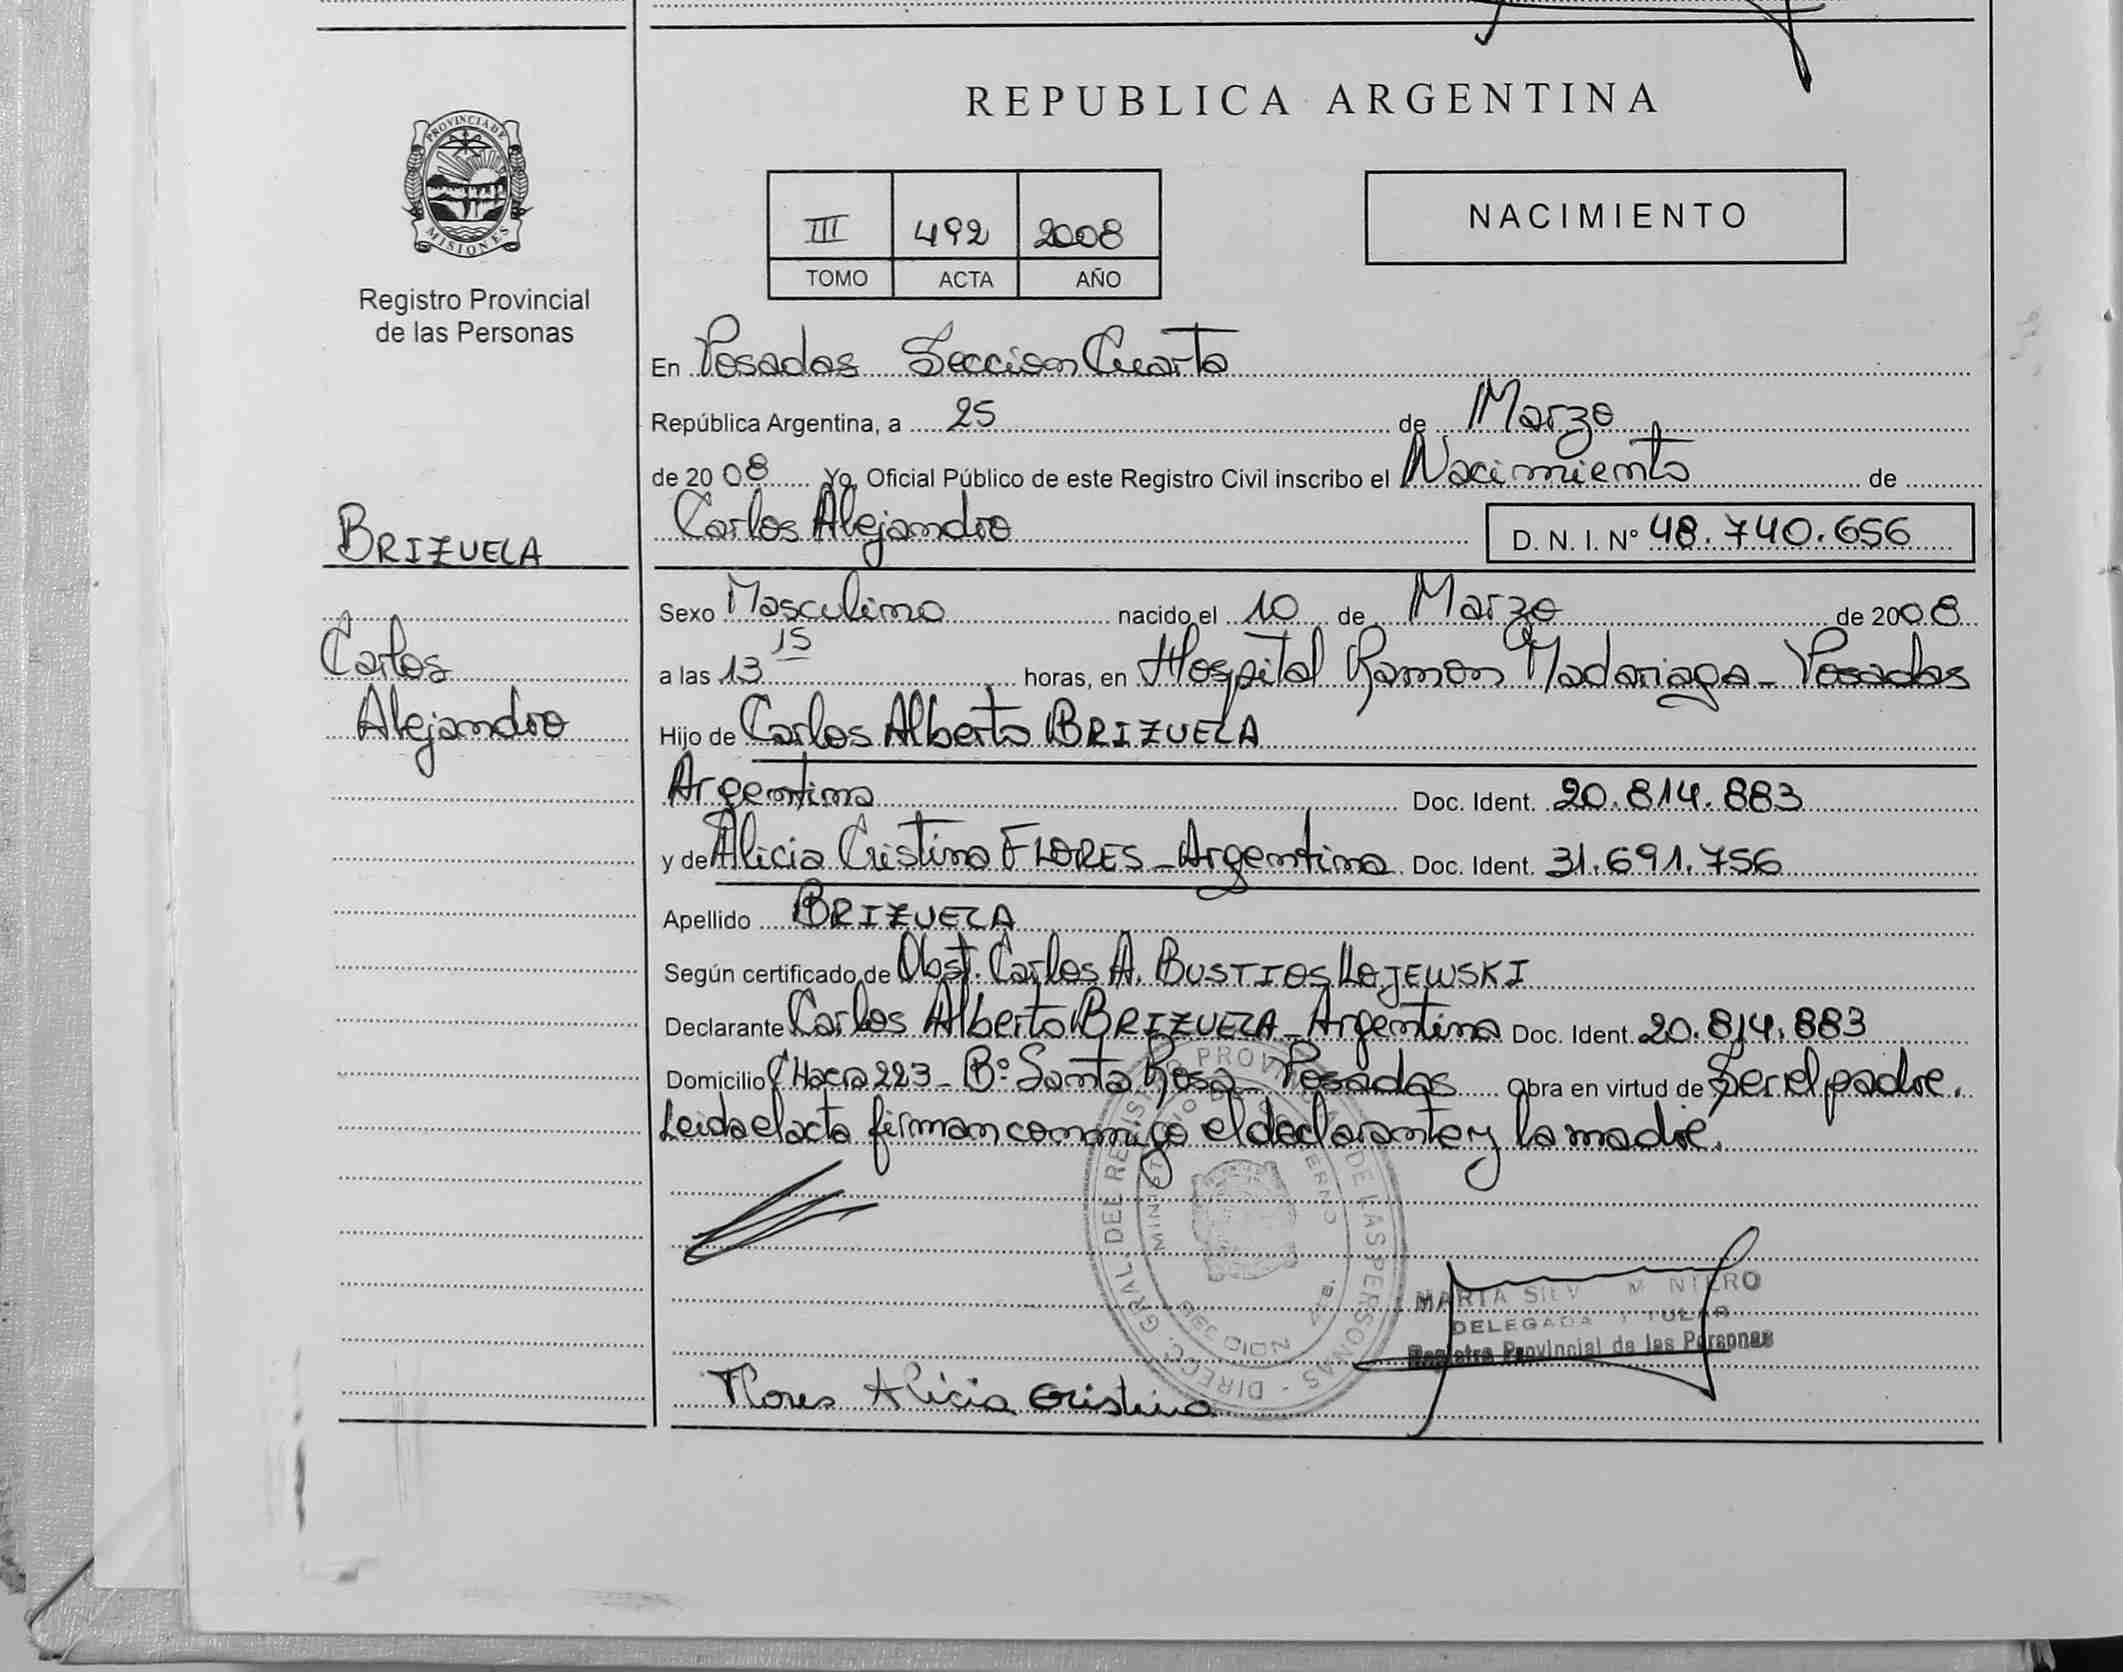 REPUBLICA ARGENTINA
PROVINCIA DE
MISIONES
Registro Provincial
de las Personas
III 492 2008
TOMO ACTA AÑO
NACIMIENTO
En Posadas Seccion Cuarta
República Argentina, a 25 de Marzo
de 2008 Yo, Oficial Público de este Registro Civil inscribo el Nacimiento de
Carlos Alejandro D. N. I. Nº 48.740.656
BRIZUELA
Carlos
Alejandro
Sexo Masculino nacido el 10 de Marzo de 2008
a las 13 15 horas, en Hospital Ramon Madariaga - Posadas
Hijo de Carlos Alberto BRIZUELA
Argentina Doc. Ident. 20.814.883
y de Alicia Cristina FLORES - Argentina Doc. Ident. 31.691.756
Apellido BRIZUELA
Según certificado de Obst. Carlos A. BUSTIOS LAJEWSKI
Declarante Carlos Alberto BRIZUELA - Argentina Doc. Ident. 20.814.883
Domicilio CHacra 223 - Bº Santa Rosa - Posadas Obra en virtud de Ser el padre.
Leida el acta firman conmigo el declarante y la madre.
DIRECC. GRAL. DEL REGISTRO PROVINCIAL DE LAS PERSONAS
MARIA
DELEGADA
Registro Provincial de las Personas
Flores Alicia Cristina